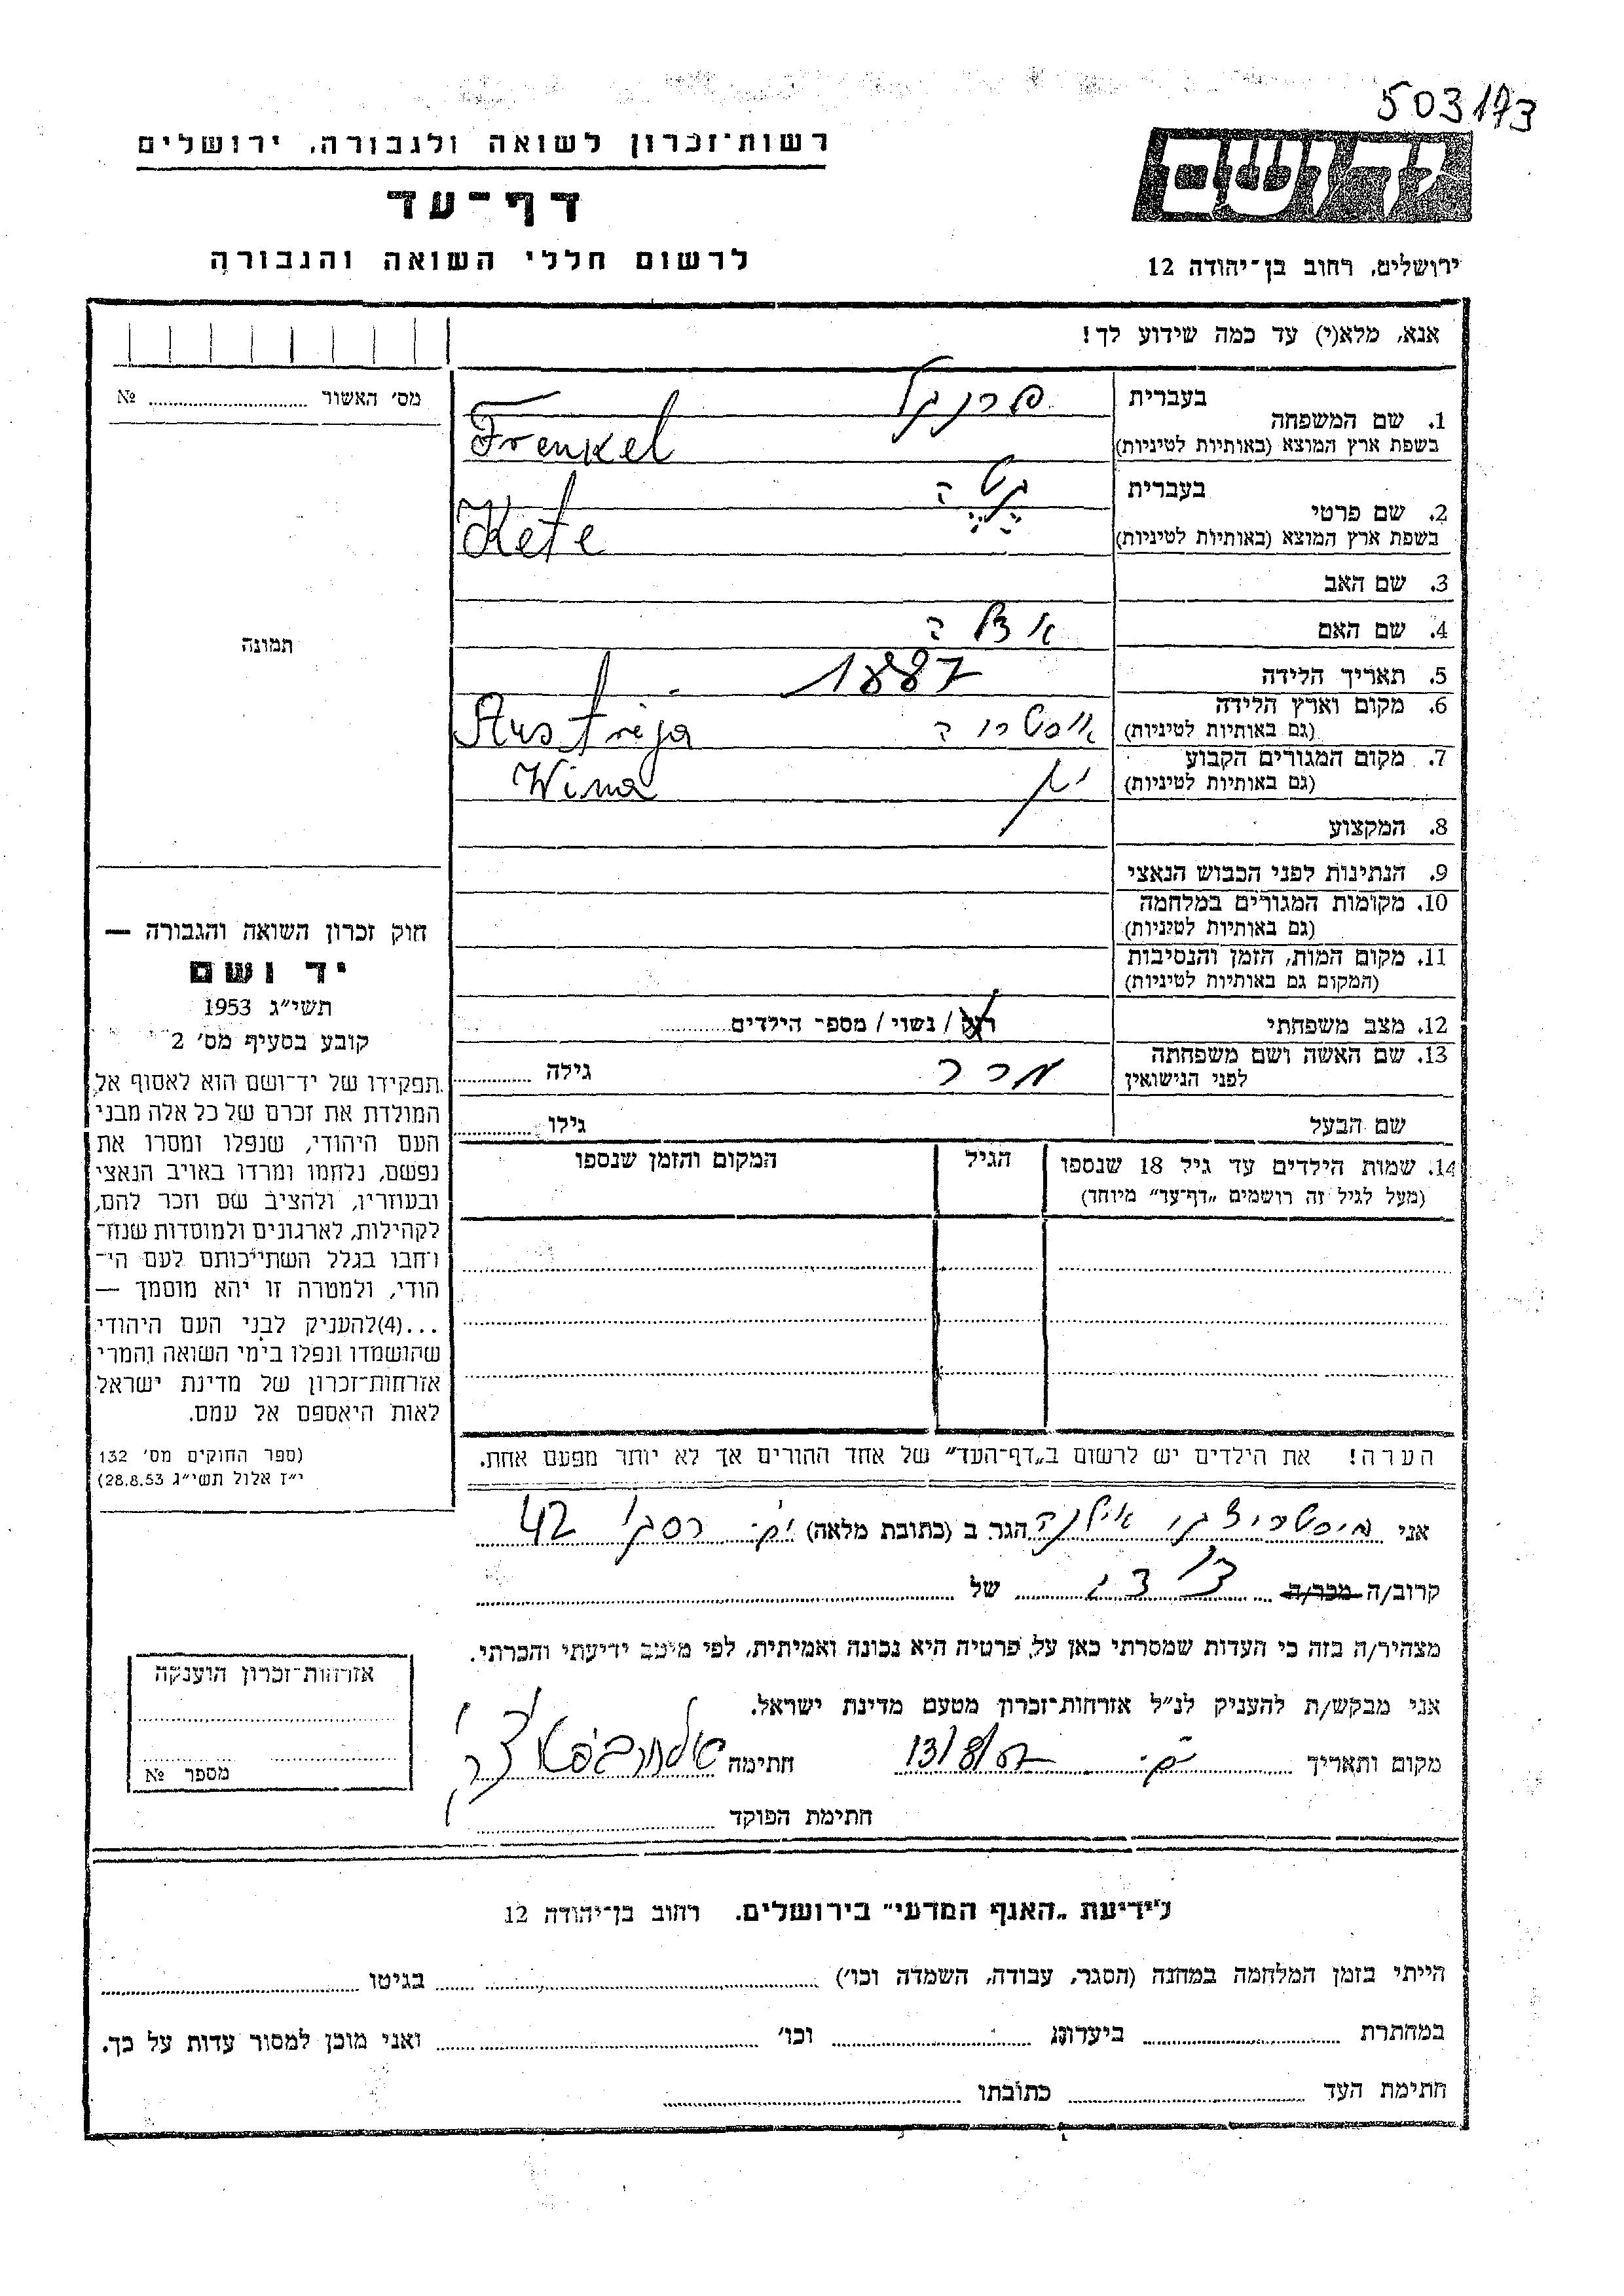 503193
רשות־זכרון לשואה ולגבורה, ירושלים
דף־עד
לרשום חללי השואה והגבורה
יד ושם
ירושלים, רחוב בן־יהודה 12
אנא, מלא(י) עד כמה שידוע לך!
מס׳ האשור № ........
1. שם המשפחה
בעברית פרנקל
בשפת ארץ המוצא (באותיות לטיניות) Frenkel
2. שם פרטי
בעברית קטה
בשפת ארץ המוצא (באותיות לטיניות) Kete
3. שם האב
4. שם האם
5. תאריך הלידה 1887
6. מקום וארץ הלידה
(גם באותיות לטיניות) אוסטריה Austrija
7. מקום המגורים הקבוע
(גם באותיות לטיניות) Wina
8. המקצוע
9. הנתינות לפני הכבוש הנאצי
10. מקומות המגורים במלחמה
(גם באותיות לטיניות)
11. מקום המות, הזמן והנסיבות
(המקום גם באותיות לטיניות)
12. מצב משפחתי רוק / נשוי / מספר הילדים........
13. שם האשה ושם משפחתה
לפני הנישואין גילה ........
שם הבעל גילו ........
תמונה
חוק זכרון השואה והגבורה —
יד ושם
תשי״ג 1953
קובע בסעיף מס׳ 2
תפקידו של יד־ושם הוא לאסוף אל
המולדת את זכרם של כל אלה מבני
העם היהודי, שנפלו ומסרו את
נפשם, נלחמו ומרדו באויב הנאצי
ובעוזריו, ולהציב שם וזכר להם,
לקהילות, לארגונים ולמוסדות שנח־
רחבו בגלל השתייכותם לעם הי־
הודי, ולמטרה זו יהא מוסמך —
...(4)להעניק לבני העם היהודי
שהושמדו ונפלו בימי השואה והמרי
אזרחות־זכרון של מדינת ישראל
לאות היאספם אל עמם.
(ספר החוקים מס׳ 132
י״ז אלול תשי״ג 28.8.53)
14. שמות הילדים עד גיל 18 שנספו הגיל המקום והזמן שנספו
(מעל לגיל זה רושמים „דף־עד״ מיוחד)
הערה! את הילדים יש לרשום ב„דף־העד״ של אחד ההורים אך לא יותר מפעם אחת.
אני אילנה הגר ב (כתובת מלאה) 42
קרוב/ה מכר/ה של
מצהיר/ה בזה כי העדות שמסרתי כאן על פרטיה היא נכונה ואמיתית, לפי מיטב ידיעתי והכרתי.
אני מבקש/ת להעניק לנ״ל אזרחות־זכרון מטעם מדינת ישראל.
מקום ותאריך 13/8/57 חתימה
חתימת הפוקד
אזרחות־זכרון הוענקה
מספר №
לידיעת „האגף המדעי״ בירושלים. רחוב בן־יהודה 12
הייתי בזמן המלחמה במחנה (הסגר, עבודה, השמדה וכו׳) ........ בגיטו ........
במחתרת ........ ביערות ........ וכו׳ ........ ואני מוכן למסור עדות על כך.
חתימת העד ........ כתובתו ........